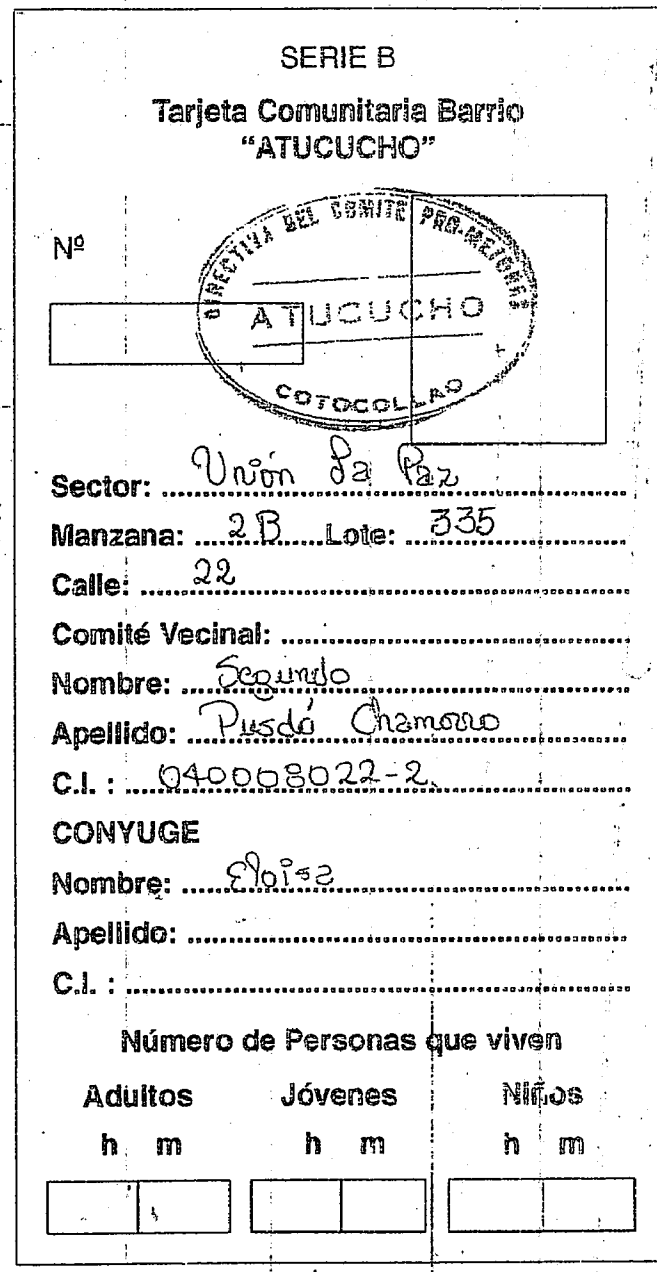 SERIE B
Tarjeta Comunitaria Barrio
"ATUCUCHO"
Nº
DIRECTIVA DEL COMITE PRO-MEJORAS
ATUCUCHO
COTOCOLLAO
Sector: Unión La Paz
Manzana: 2B Lote: 335
Calle: 22
Comité Vecinal:
Nombre: Segundo
Apellido: Pusdá Chamorro
C.I. : 040008022-2
CONYUGE
Nombre: Eloisa
Apellido:
C.I. :
Número de Personas que viven
Adultos Jóvenes Niños
h m h m h m